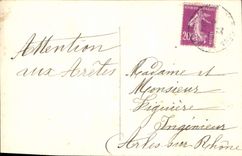 Attention
aux Arêtes
20c
Madame et
Monsieur
Figuière
Ingénieur
Arles sur Rhône